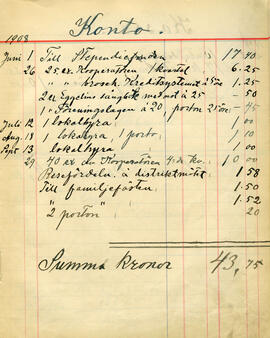 Konto.
1908
Juni 1 Till Stipendiefonden 17 40
26 25 ex. Kooperatören 1 kvartal 6 . 25
" " brosch. Kreditsystemet à 5 öre 1 . 25
2 ex Eggelins sångbok med not à 25 - 50
1 Föreningslagen à 20, porton 25 öre - 45
Juli 12 1 lokalhyra 1 00
Aug. 13 1 lokalhyra, 1 porto 1 10
Sept 13 1 lokalhyra 1 00
29 40 ex av Kooperatören 4:de kv. 10 00
Reseförden. à distriktmötet 1 58
Till familjefästen 1 50
" " 1.52
" 2 porton " 20
Summa kronor 43,75